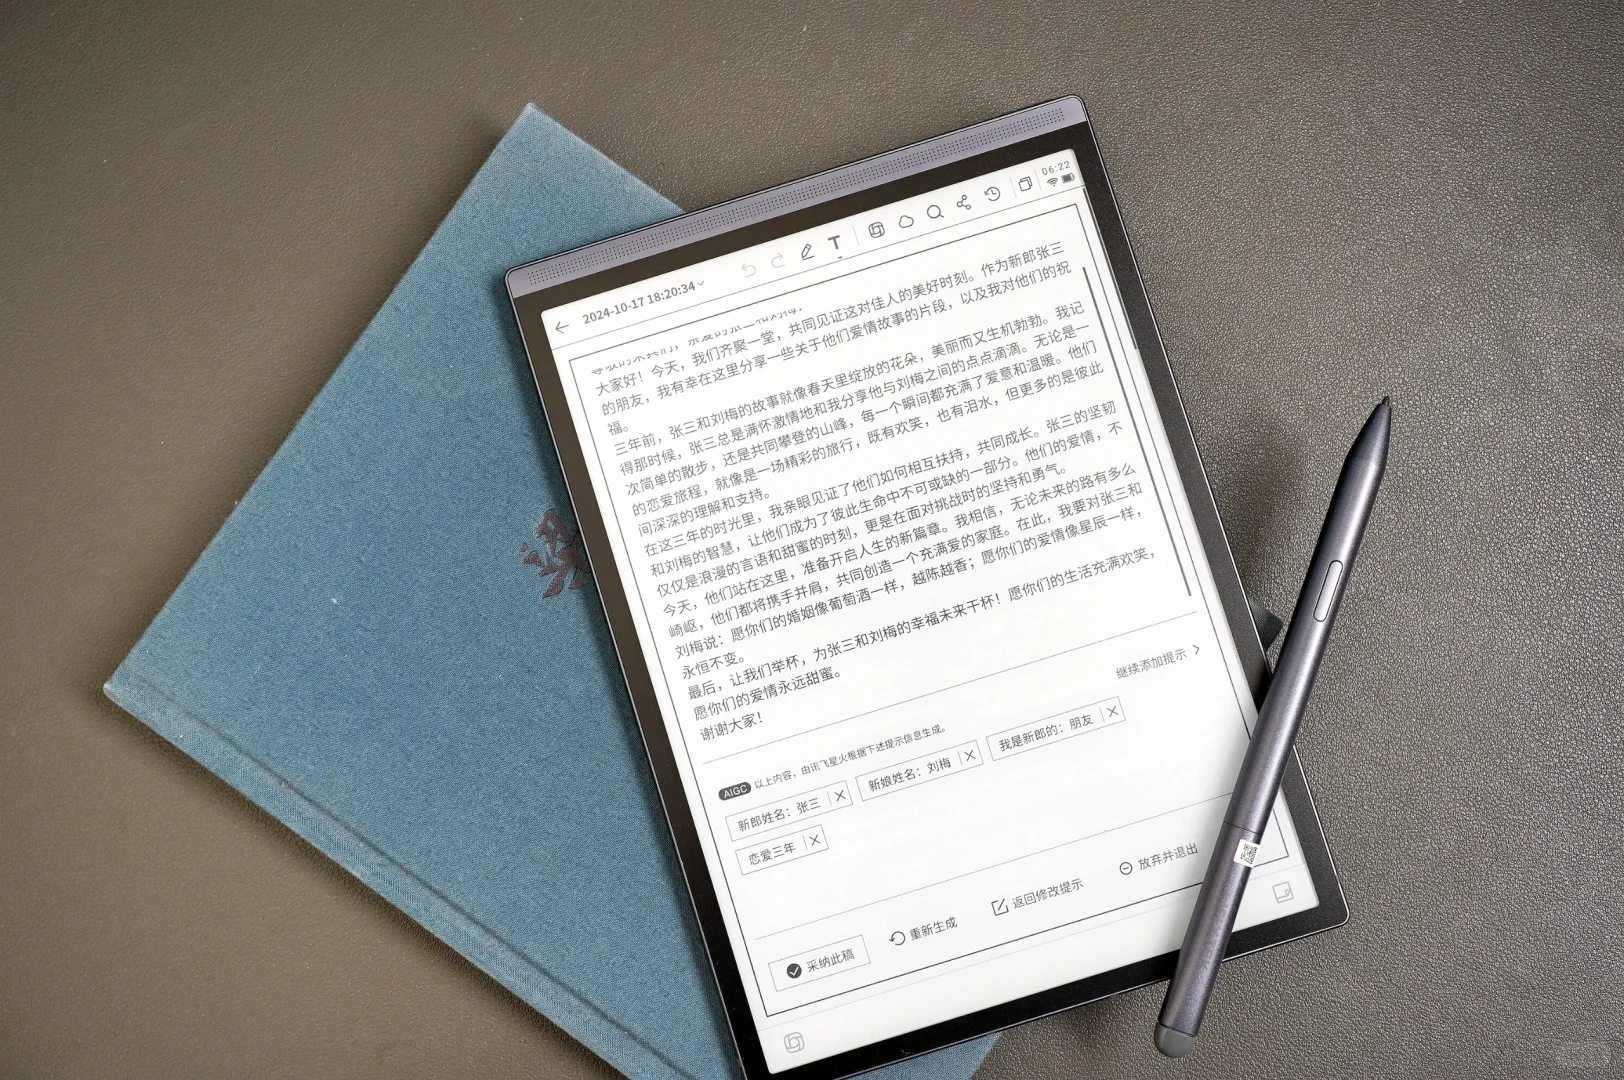 06:22
2024-10-17 18:20:34
大家好！今天，我们齐聚一堂，共同见证这对佳人的美好时刻。作为新郎张三
的朋友，我有幸在这里分享一些关于他们爱情故事的片段，以及我对他们的祝
福。
三年前，张三和刘梅的故事就像春天里绽放的花朵，美丽而又生机勃勃。我记
得那时候，张三总是满怀激情地和我分享他与刘梅之间的点点滴滴。无论是一
次简单的散步，还是共同攀登的山峰，每一个瞬间都充满了爱意和温暖。他们
的恋爱旅程，就像是一场精彩的旅行，既有欢笑，也有泪水，但更多的是彼此
间深深的理解和支持。
在这三年的时光里，我亲眼见证了他们如何相互扶持，共同成长。张三的坚韧
和刘梅的智慧，让他们成为了彼此生命中不可或缺的一部分。他们的爱情，不
仅仅是浪漫的言语和甜蜜的时刻，更是在面对挑战时的坚持和勇气。
今天，他们站在这里，准备开启人生的新篇章。我相信，无论未来的路有多么
崎岖，他们都将携手并肩，共同创造一个充满爱的家庭。在此，我要对张三和
刘梅说：愿你们的婚姻像葡萄酒一样，越陈越香；愿你们的爱情像星辰一样，
永恒不变。
最后，让我们举杯，为张三和刘梅的幸福未来干杯！愿你们的生活充满欢笑，
愿你们的爱情永远甜蜜。
谢谢大家！
继续添加提示
AIGC 以上内容，由讯飞星火根据下述提示信息生成。
新郎姓名：张三
新娘姓名：刘梅
我是新郎的：朋友
恋爱三年
采纳此稿
重新生成
返回修改提示
放弃并退出